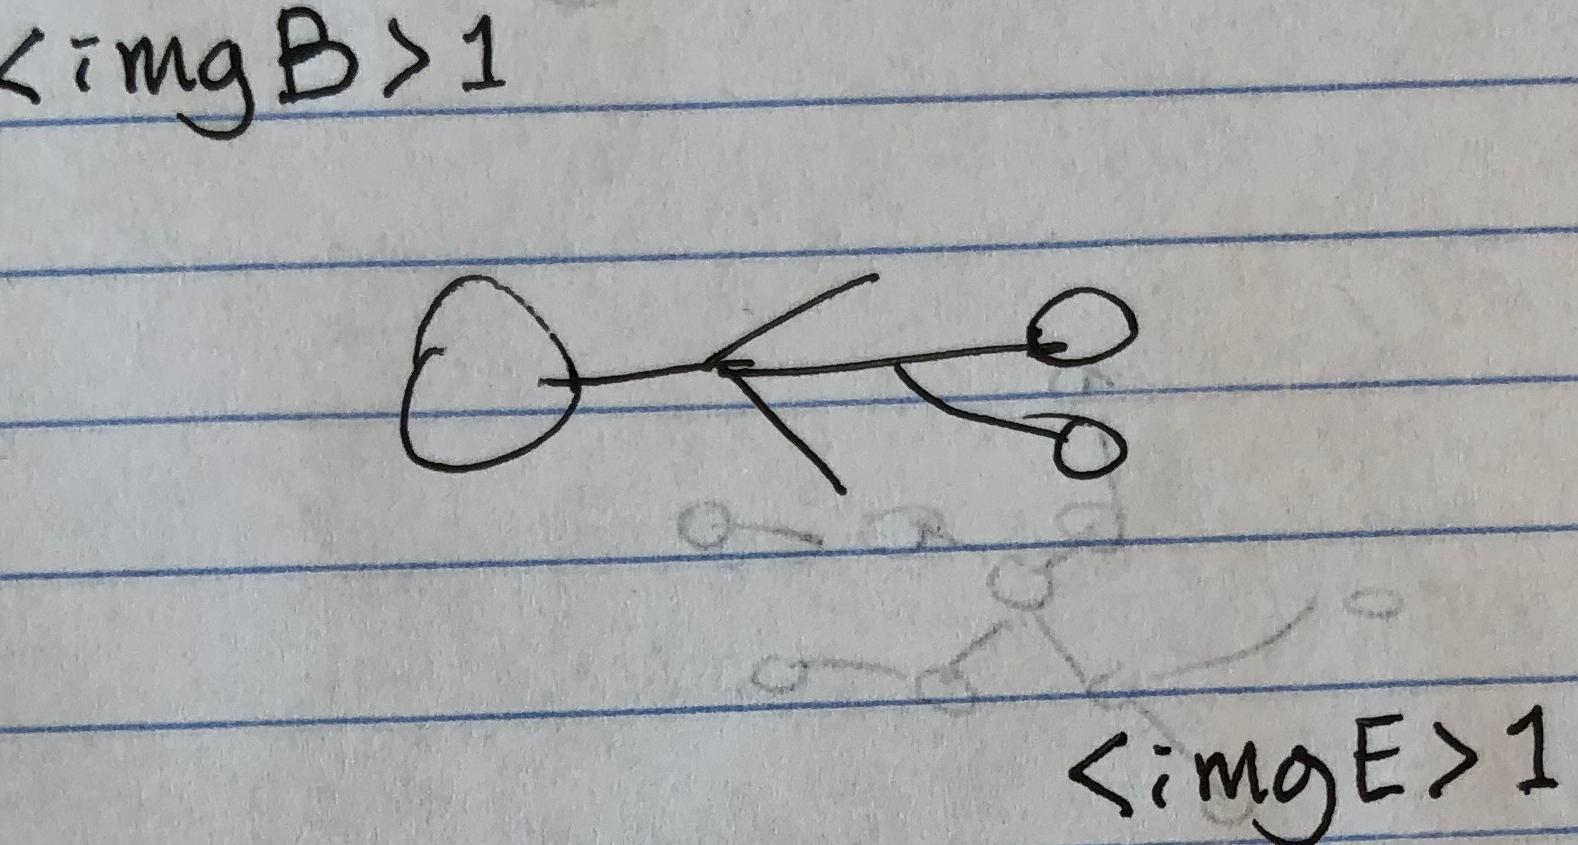 <imgB>1
<imgE>1